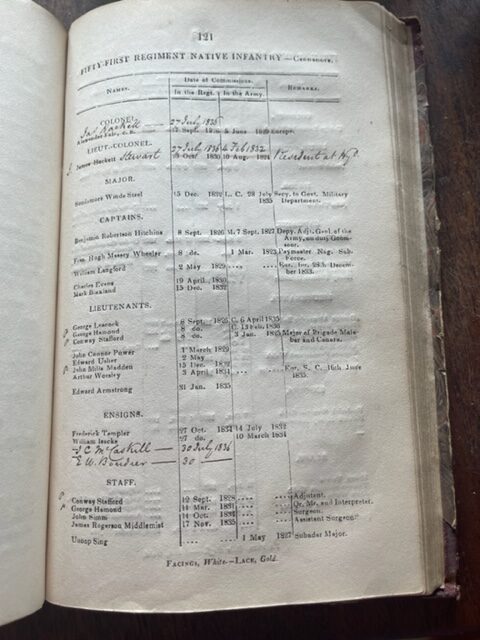 121
FIFTY-FIRST REGIMENT NATIVE INFANTRY—Cannanore.
NAMES. Date of Commissions. REMARKS.
In the Regt. In the Army.
COLONEL. 27 July 1836
Alexander Fair, C.B. Sept. 1826 5 June 1829 Europe.
LIEUT.-COLONEL. 27 July 1836 4 Feb 1832
James Hackett Stewart Oct. 1830 10 Aug. 1831 Resident at Hyd
MAJOR.
Soudamore Winde Steel 15 Dec. 1832 L. C. 28 July 1835 Secy. to Govt. Military Department.
CAPTAINS.
Benjamin Robertson Hitchins 8 Sept. 1826 M. 7 Sept. 1827 Depy. Adjt. Genl. of the Army, on duty Goomsoor.
Fran. Hugh Massey Wheeler 8 do. 1 Mar. 1823 Paymaster Nag. Sub. Force.
William Langford 2 May 1829 .... .... Eur. Inv. December 1833.
Charles Evans 19 April 1830
Mark Blaxland 15 Dec. 1832
LIEUTENANTS.
George Leacock 8 Sept. 1826 C. 6 April 1835
George Hamond 8 do. C. 13 Feb. 1836
Conway Stafford 8 do. 3 Jan. 1825 Major of Brigade Malabar and Canara.
John Connor Power 1 March 1829
Edward Usher 2 May
John Mills Madden 15 Dec. 1832
Arthur Worsley 3 April 1834 .... .... Eur. S. C. 16th June 1835.
Edward Armstrong 31 Jan. 1835
ENSIGNS.
Frederick Templer 27 Oct. 1834 14 July 1832
William Isacke 27 do. 10 March 1834
J C McCaskill — 30 July 1836
E. W. Boudier — 30 —
STAFF.
Conway Stafford 12 Sept. 1828 .... .... Adjutant.
George Hamond 14 Mar. 1831 .... .... Qr. Mr. and Interpreter.
John Simm 14 Oct. 1834 .... .... Surgeon.
James Rogerson Middlemist 17 Nov. 1835 .... .... Assistant Surgeon.
Sing .... .... 1 May 1827 Subadar Major.
FACINGS, White.—LACE, Gold.